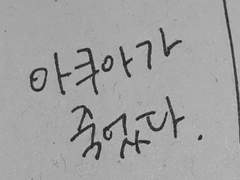 아쿠아가
죽었다.